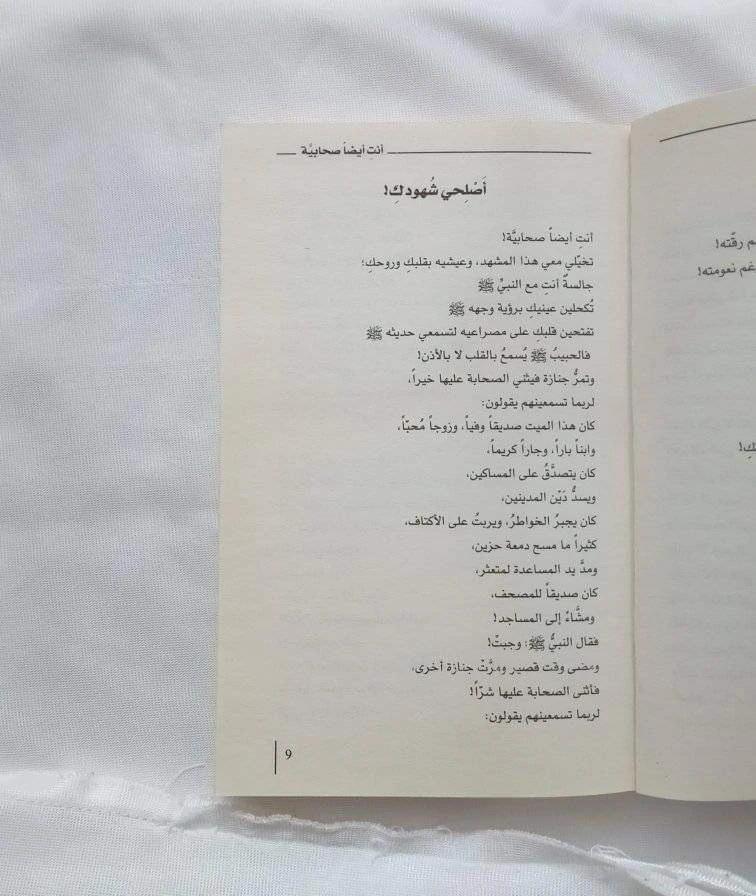 أنتِ أيضاً صحابيَّة
أَصْلِحي شُهودكِ!
أنتِ أيضاً صحابيَّة!
تخيّلي معي هذا المشهد، وعيشيه بقلبكِ وروحكِ؛
جالسةٌ أنتِ مع النبيِّ ﷺ
تُكحلين عينيكِ برؤية وجهه ﷺ
تفتحين قلبكِ على مصراعيه لتسمعي حديثه ﷺ
فالحبيبُ ﷺ يُسمعُ بالقلب لا بالأذن!
وتمرُّ جنازة فيثني الصحابة عليها خيراً،
لربما تسمعينهم يقولون:
كان هذا الميت صديقاً وفياً، وزوجاً مُحبّاً،
وابناً باراً، وجاراً كريماً،
كان يتصدَّقُ على المساكين،
ويسدُّ دَيْن المدينين،
كان يجبرُ الخواطرُ، ويربتُ على الأكتاف،
كثيراً ما مسح دمعة حزين،
ومدَّ يد المساعدة لمتعثر،
كان صديقاً للمصحف،
ومشَّاءً إلى المساجد!
فقال النبيُّ ﷺ: وجبتْ!
ومضى وقت قصير ومرَّتْ جنازة أخرى،
فأثنى الصحابة عليها شرّاً!
لربما تسمعينهم يقولون:
9
رقّته!
غم نعومته!